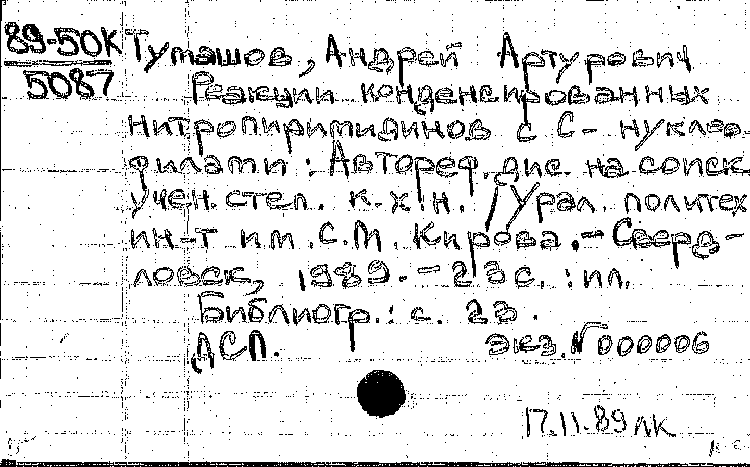 89-50К Тумашов, Андрей Артурович
5087 Реакции конденсированных
нитропиримидинов с С- нуклео-
филами : Автореф. дис. на соиск.
учен. степ. к. х. н. / Урал. политех.
ин-т им. С. М. Кирова. – Сверд-
ловск, 1989. – 23 с. : ил.
Библиогр.: с. 23.
ДСП. экз. № 000006
17.11.89 лк